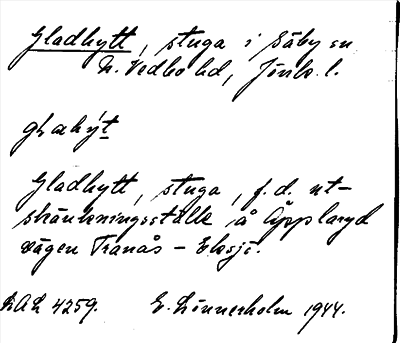 Gladhytt, stuga i Säby sn
N. Vedbo hd, Jönk. l.
glahýt
Gladhytt, stuga, f.d. ut-
skänkningsställe å Äpplaryd
vägen Tranås - Eksjö.
LAL 4259. E. Linnerholm 1944.